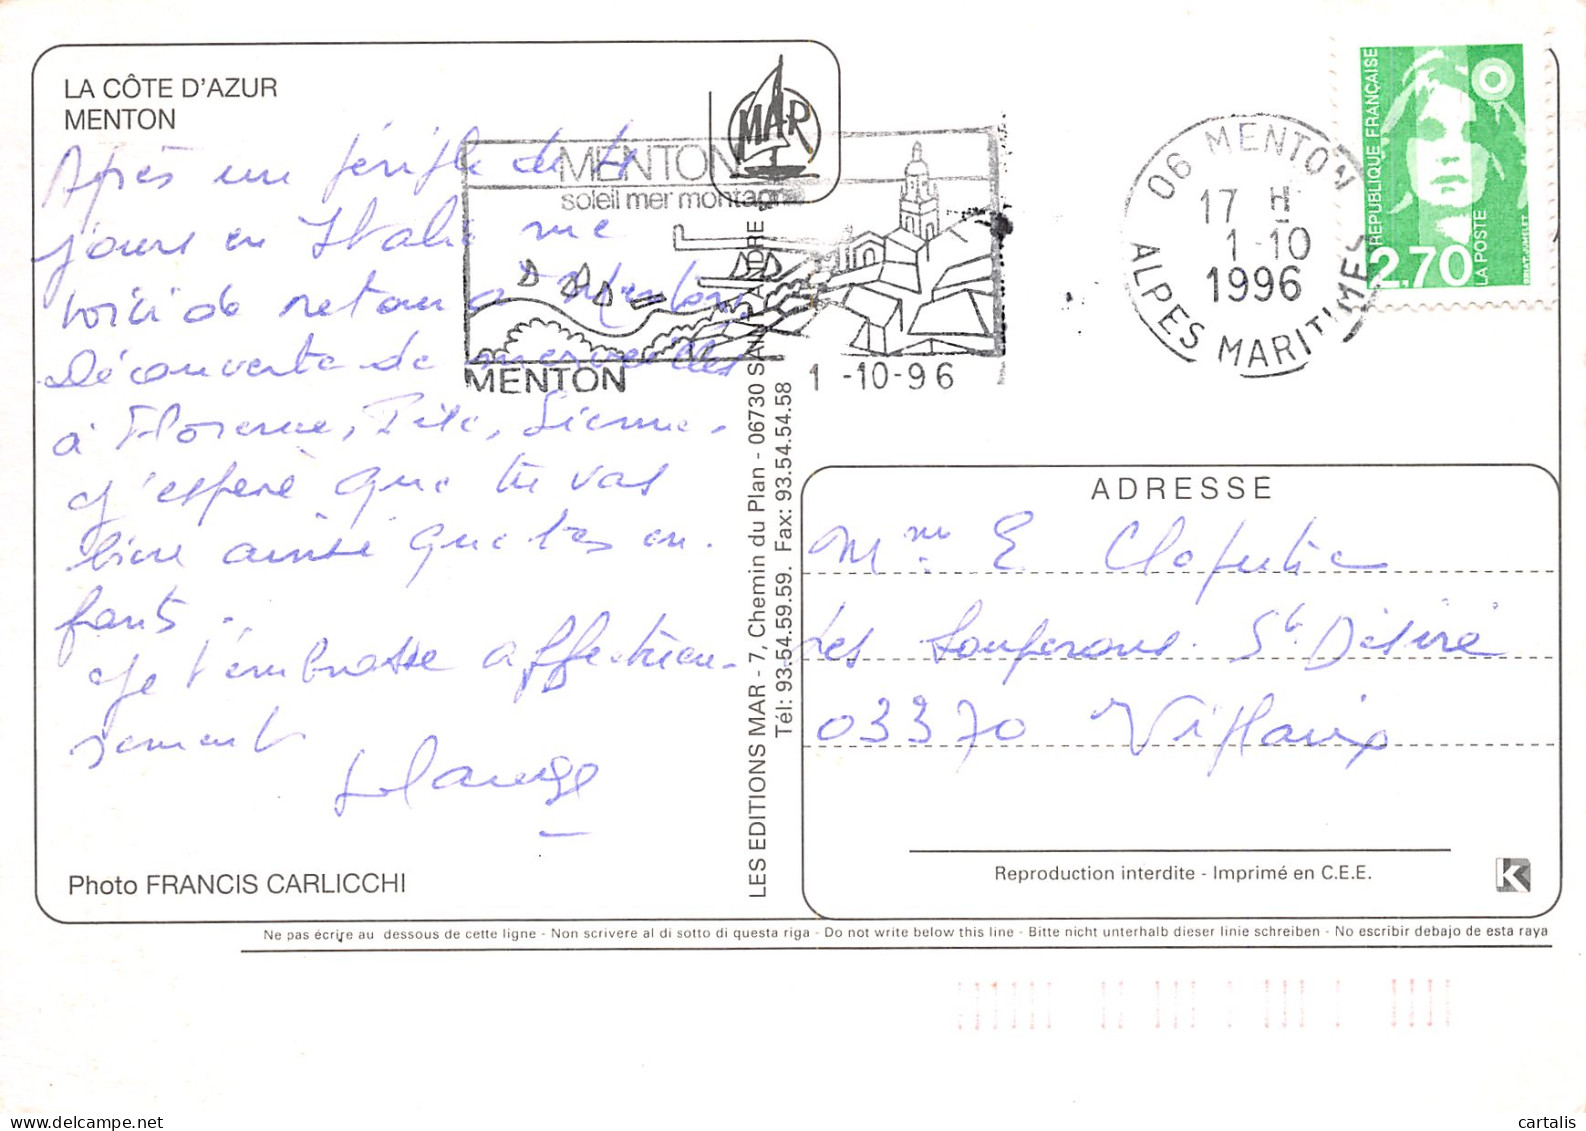 LA CÔTE D'AZUR
MENTON
Après un périple de
jours en Italie me
voici de retour à Menton,
Découverte de merveilles
à Florence, Pise, Sienne.
J'espère que tu vas
bien ainsi que tes en-
fants.
Je t'embrasse affectueu-
sement
Photo FRANCIS CARLICCHI
MAR
MENTON
soleil mer montagne
MENTON
1 -10-96
06 MENTON
17 H
1-10
1996
ALPES MARITIMES
REPUBLIQUE FRANÇAISE
2,70
LA POSTE
LES EDITIONS MAR - 7, Chemin du Plan - 06730 SAINT ANDRE
Tél: 93.54.59.59. Fax: 93.54.54.58
ADRESSE
Mme E
Les St Désiré
03370
Reproduction interdite - Imprimé en C.E.E.
K
Ne pas écrire au dessous de cette ligne - Non scrivere al di sotto di questa riga - Do not write below this line - Bitte nicht unterhalb dieser linie schreiben - No escribir debajo de esta raya
cartalis